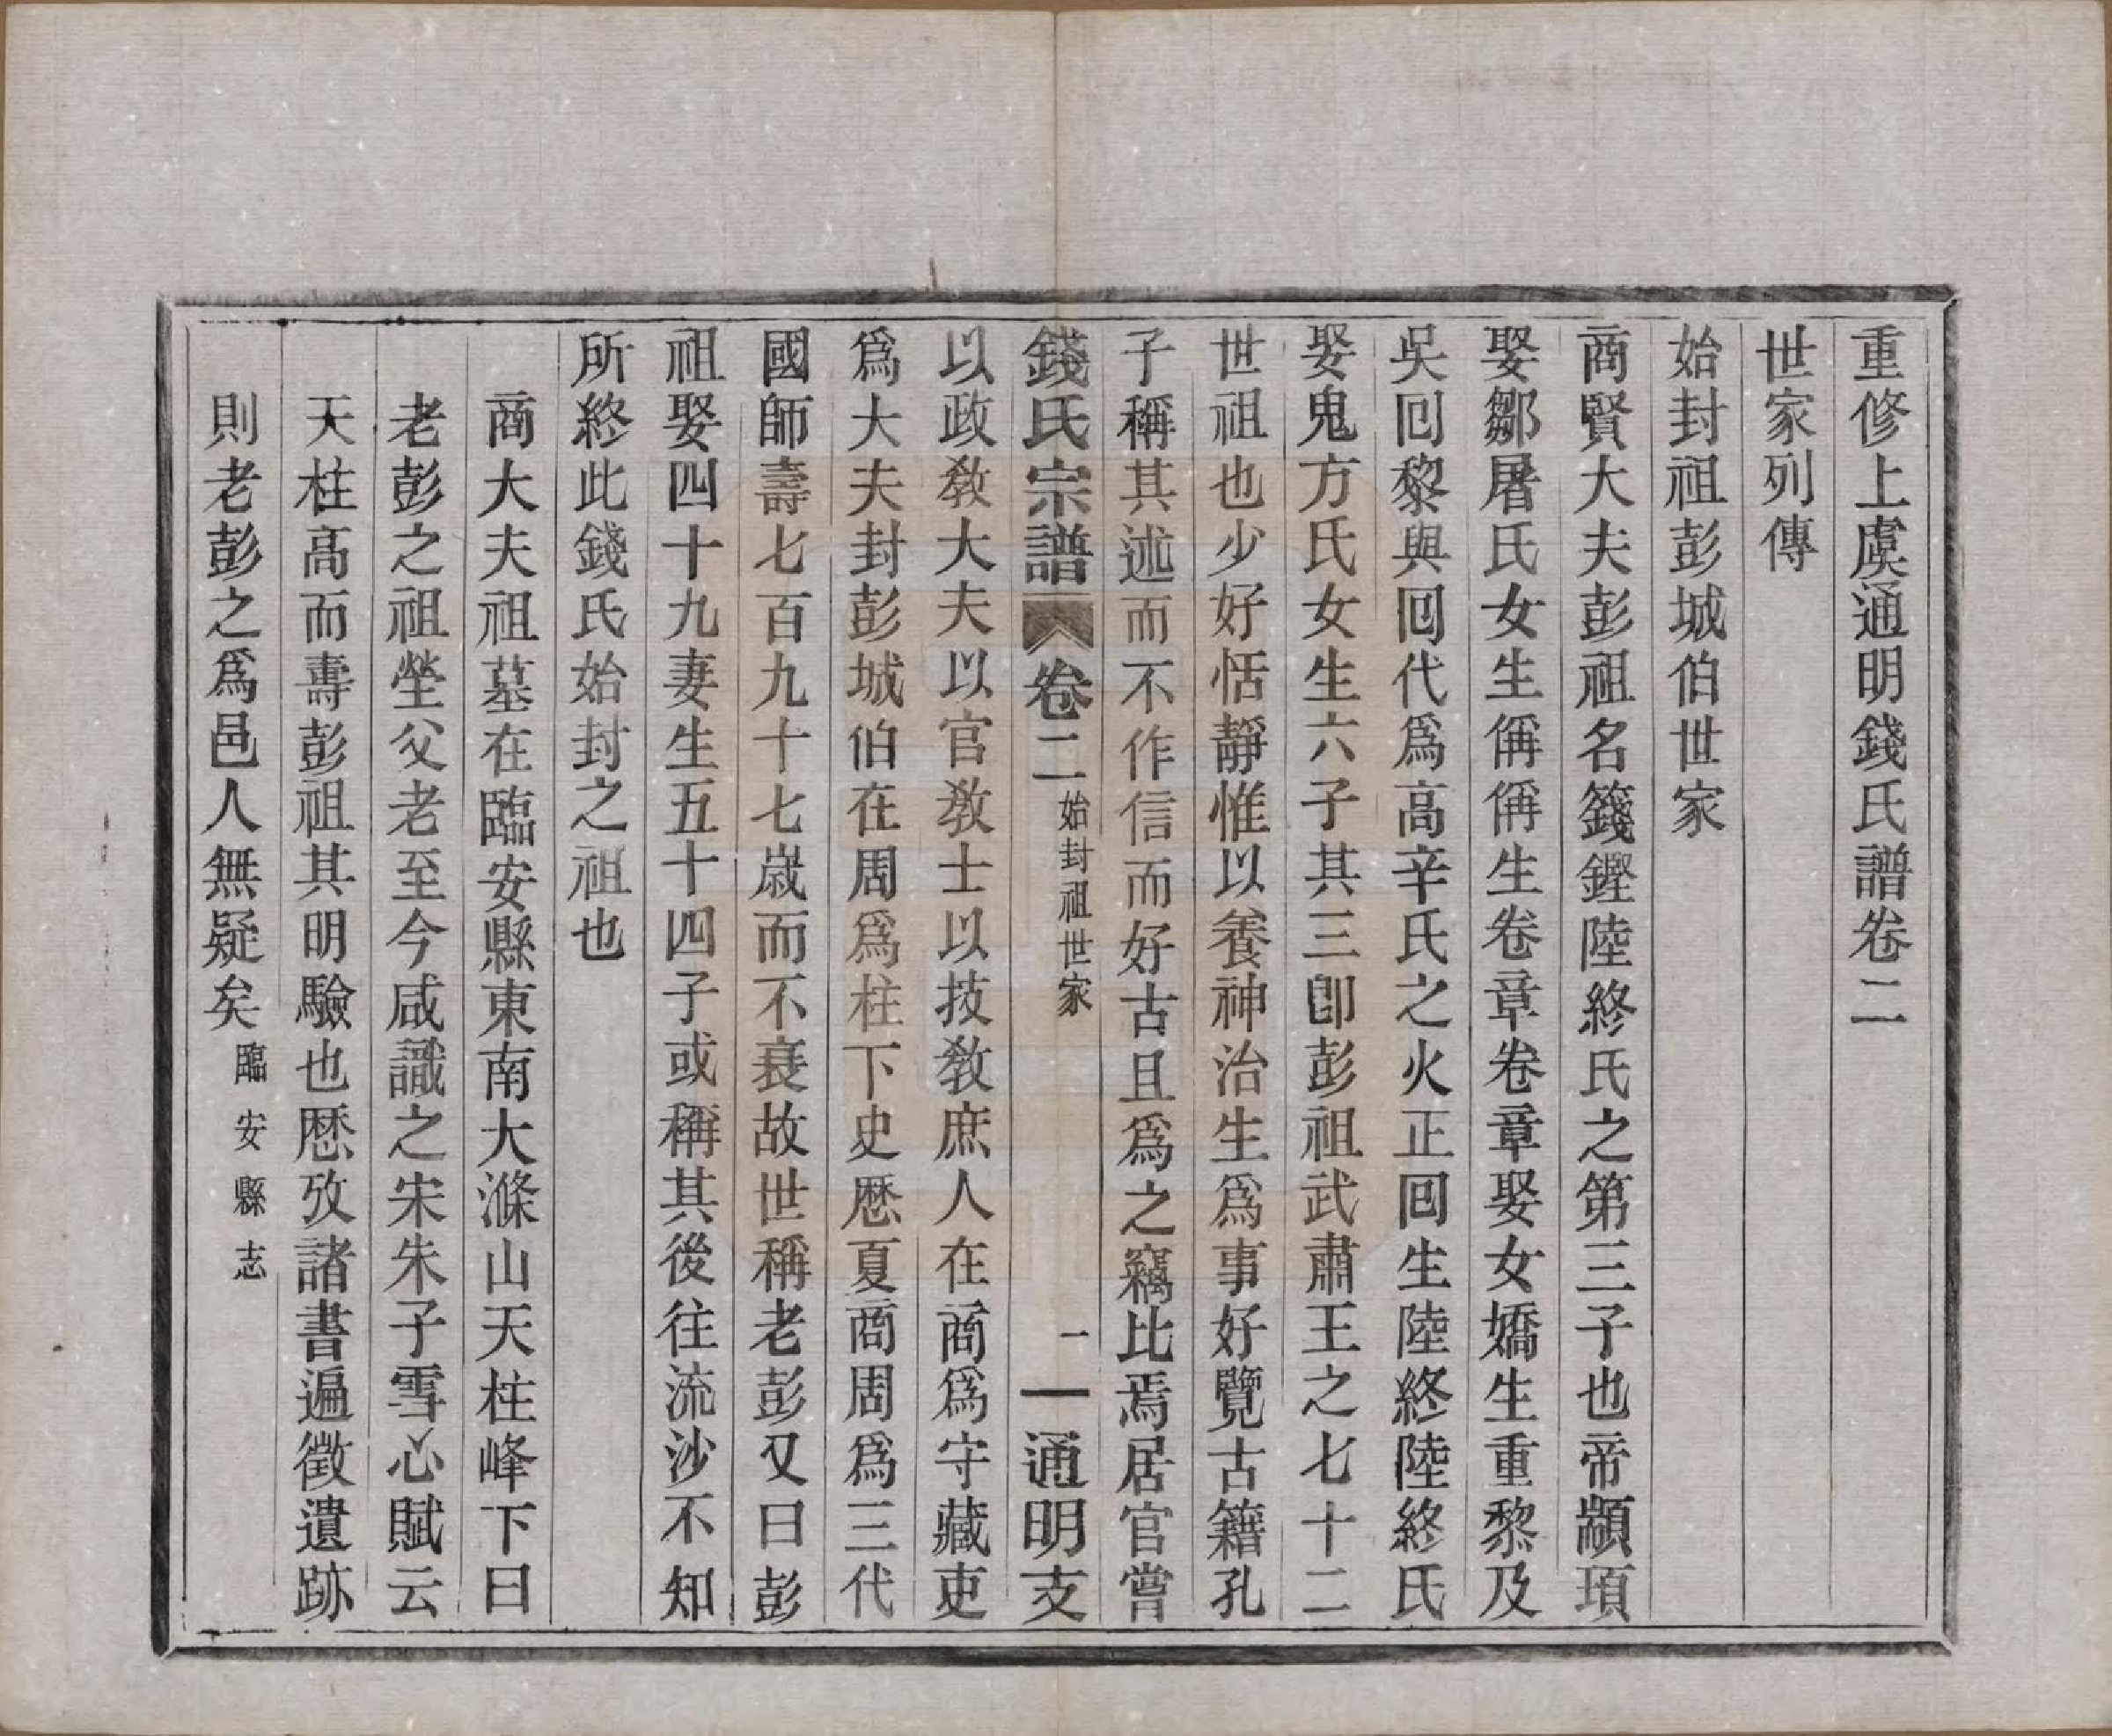 重修上虞通明錢氏譜卷二
世家列傳
始封祖彭城伯世家
商賢大夫彭祖名籛鏗陸終氏之第三子也帝顓頊
娶鄒屠氏女生偁偁生卷章卷章娶女嬌生重黎及
吳回黎與回代爲高辛氏之火正回生陸終陸終氏
娶鬼方氏女生六子其三卽彭祖武肅王之七十二
世祖也少好恬靜惟以養神治生爲事好覽古籍孔
子稱其述而不作信而好古且爲之竊比焉居官嘗
錢氏宗譜 卷二 始封祖世家 一 通明支
以政敎大夫以官敎士以技敎庶人在商爲守藏吏
爲大夫封彭城伯在周爲柱下史歷夏商周爲三代
國師壽七百九十七歲而不衰故世稱老彭又曰彭
祖娶四十九妻生五十四子或稱其後往流沙不知
所終此錢氏始封之祖也
商大夫祖墓在臨安縣東南大滌山天柱峰下曰
老彭之祖塋父老至今咸識之宋朱子雪心賦云
天柱高而壽彭祖其明驗也歷攷諸書遍徵遺跡
則老彭之爲邑人無疑矣臨安縣志